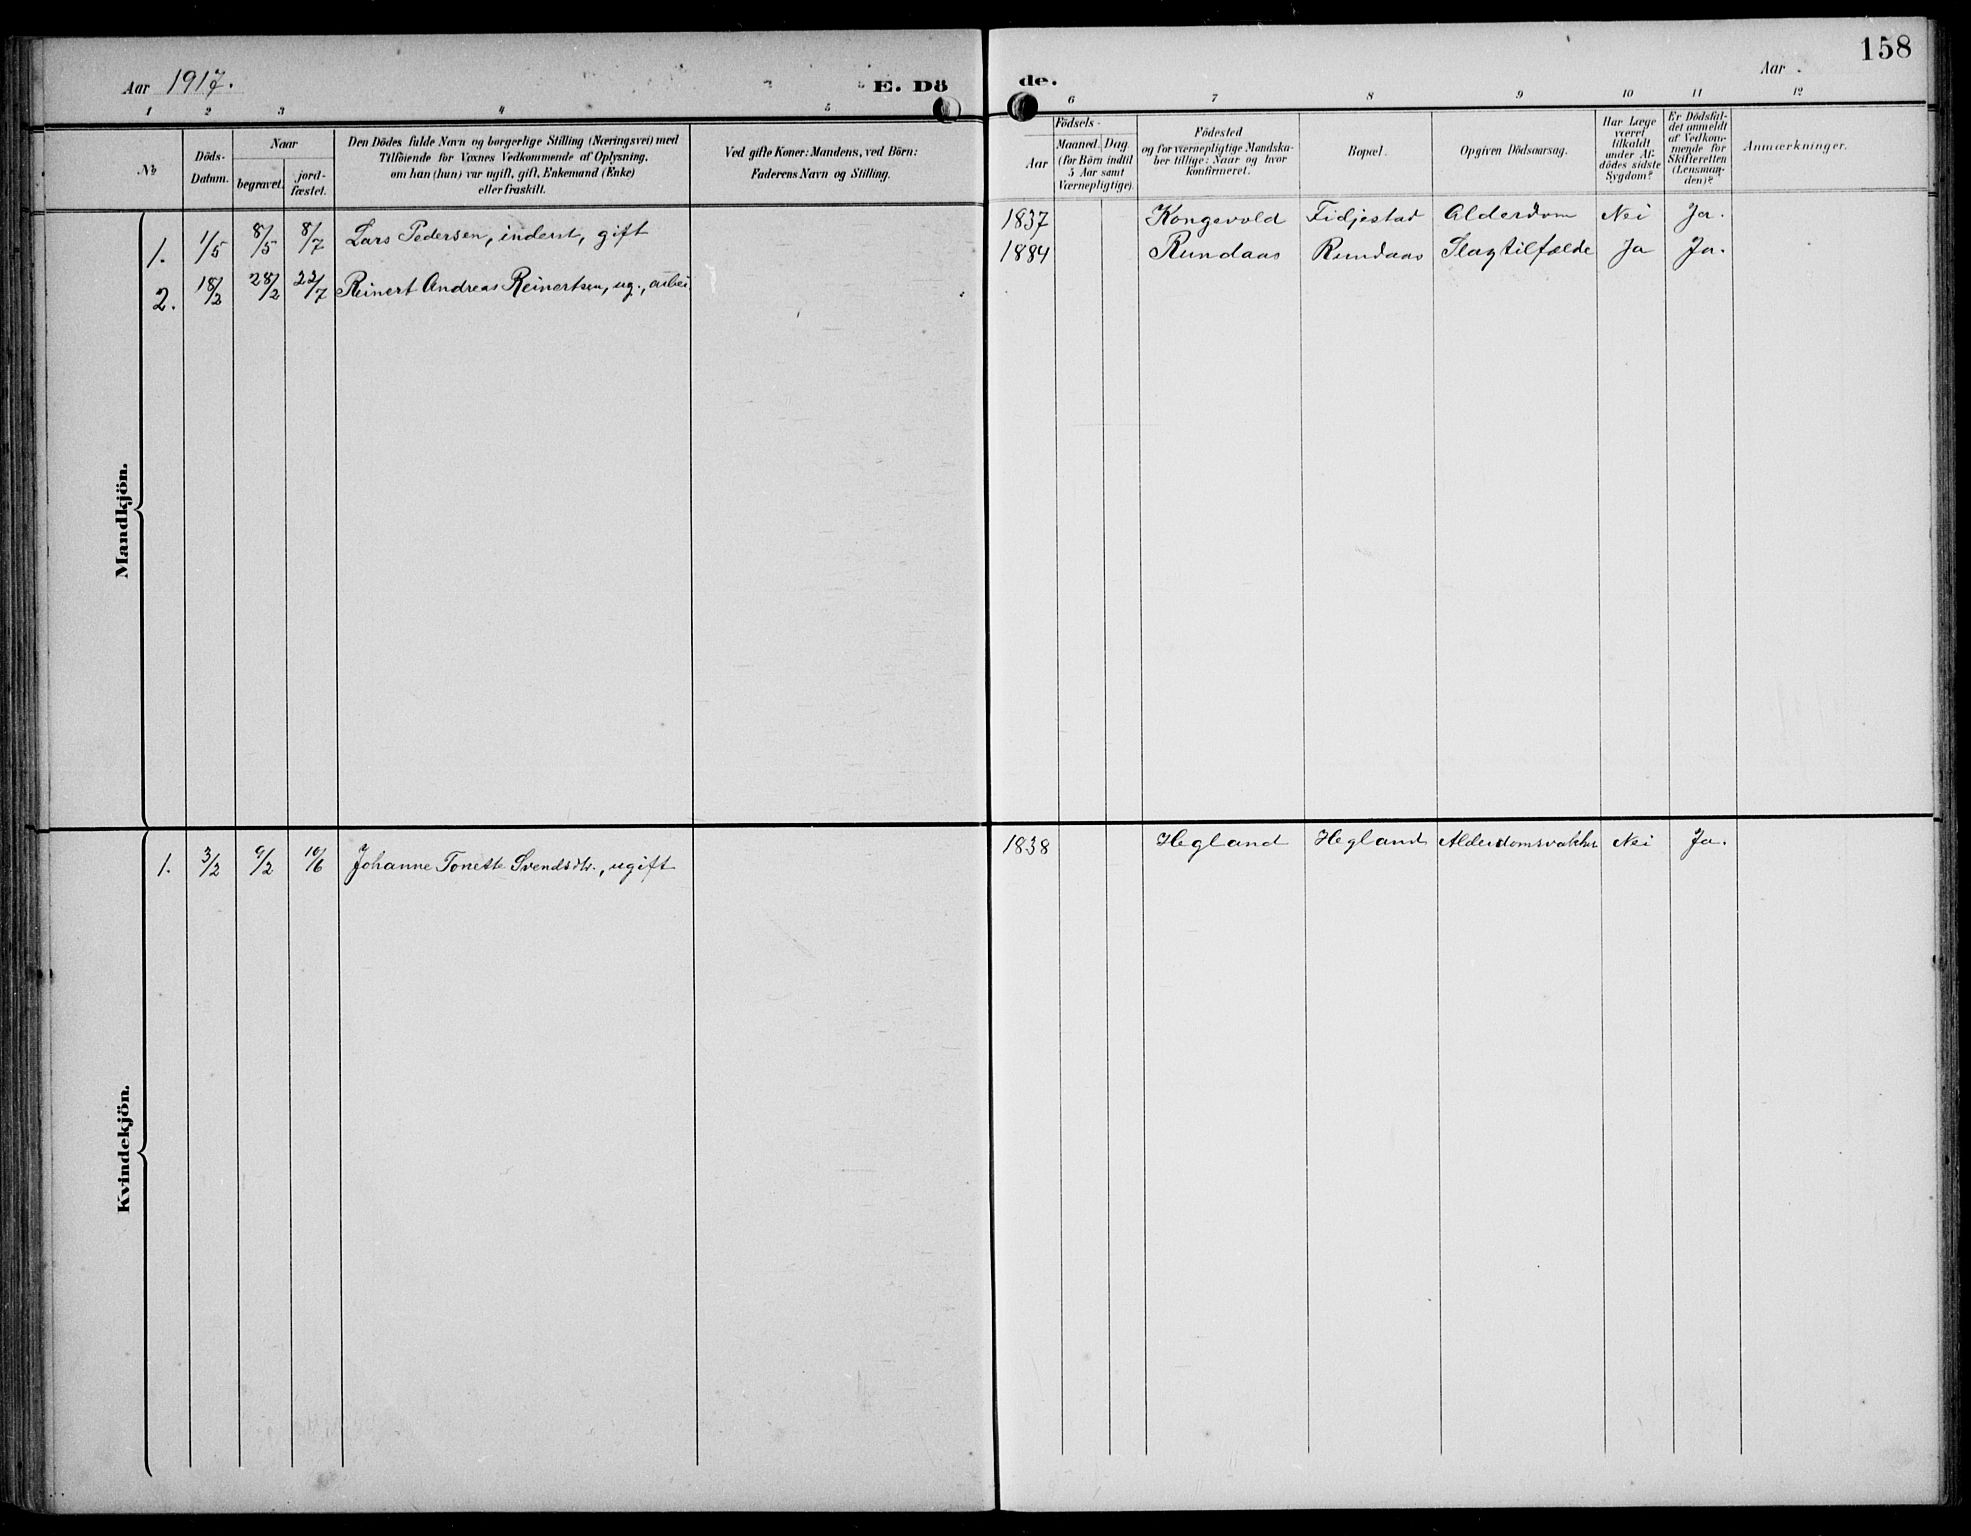 158
Aar 1917. E. Dö de. Aar .
1 2 3 4 5 6 7 8 9 10 11 12
No
Döds-
Datum.
Naar
begravet.
jord-
fæstet.
Den Dödes fulde Navn og borgerlige Stilling (Næringsvei) med
Tilföiende for Voxnes Vedkommende af Oplysning,
om han (hun) var ugift, gift, Enkemand (Enke)
eller fraskilt.
Ved gifte Koner: Mandens, ved Börn:
Faderens Navn og Stilling.
Födsels-
Aar
Maaned. Dag.
(for Börn indtil
5 Aar samt
Værnepligtige).
Födested
og for værnepligtige Mandska-
ber tillige: Naar og hvor
konfirmeret.
Bopæl.
Opgiven Dödsaarsag.
Har Læge
været
tilkaldt
under Af-
dödes sidste
Sygdom?
Er Dödsfal-
det anmeldt
af Vedkom-
mende for
Skifteretten
(Lensman-
den)?
Anmærkninger.
Mandkjön.
1. 1/5 8/5 8/7 Lars Pedersen, inderst, gift 1837 Kongevold Fidjestad Alderdom Nei Ja.
2. 18/2 28/2 22/7 Reinert Andreas Reinertsen, ug., arbei 1884 Rundaas Rundaas Slagtilfælde Ja Ja.
Kvindekjön.
1. 3/2 9/2 10/6 Johanne Tonette Svendsdtr., ugift 1838 Hegland Hegland Nei Ja.